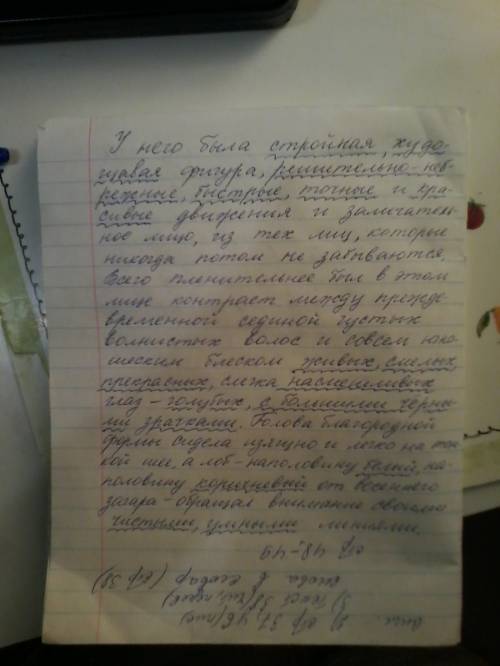 У него была стройная, худо-
щавая фигура, решительно-неб-
режные, быстрые, точные и кра-
сивые движения и замечатель-
ное лицо, из тех лиц, которые
никогда потом не забываются.
Всего пленительнее был в этом
лице контраст между прежде-
временной сединой густых
волнистых волос и совсем юно-
шеским блеском живых, смелых,
прекрасных, слегка насмешливых
глаз - голубых, с большими черны-
ми зрачками. Голова благородной
формы сидела изящно и легко на тон-
кой шее, а лоб - наполовину белый, на-
половину коричневый от весеннего
загара - обращал внимание своими
чистыми, умными линиями.
стр 48-49
слова в словар (стр 38)